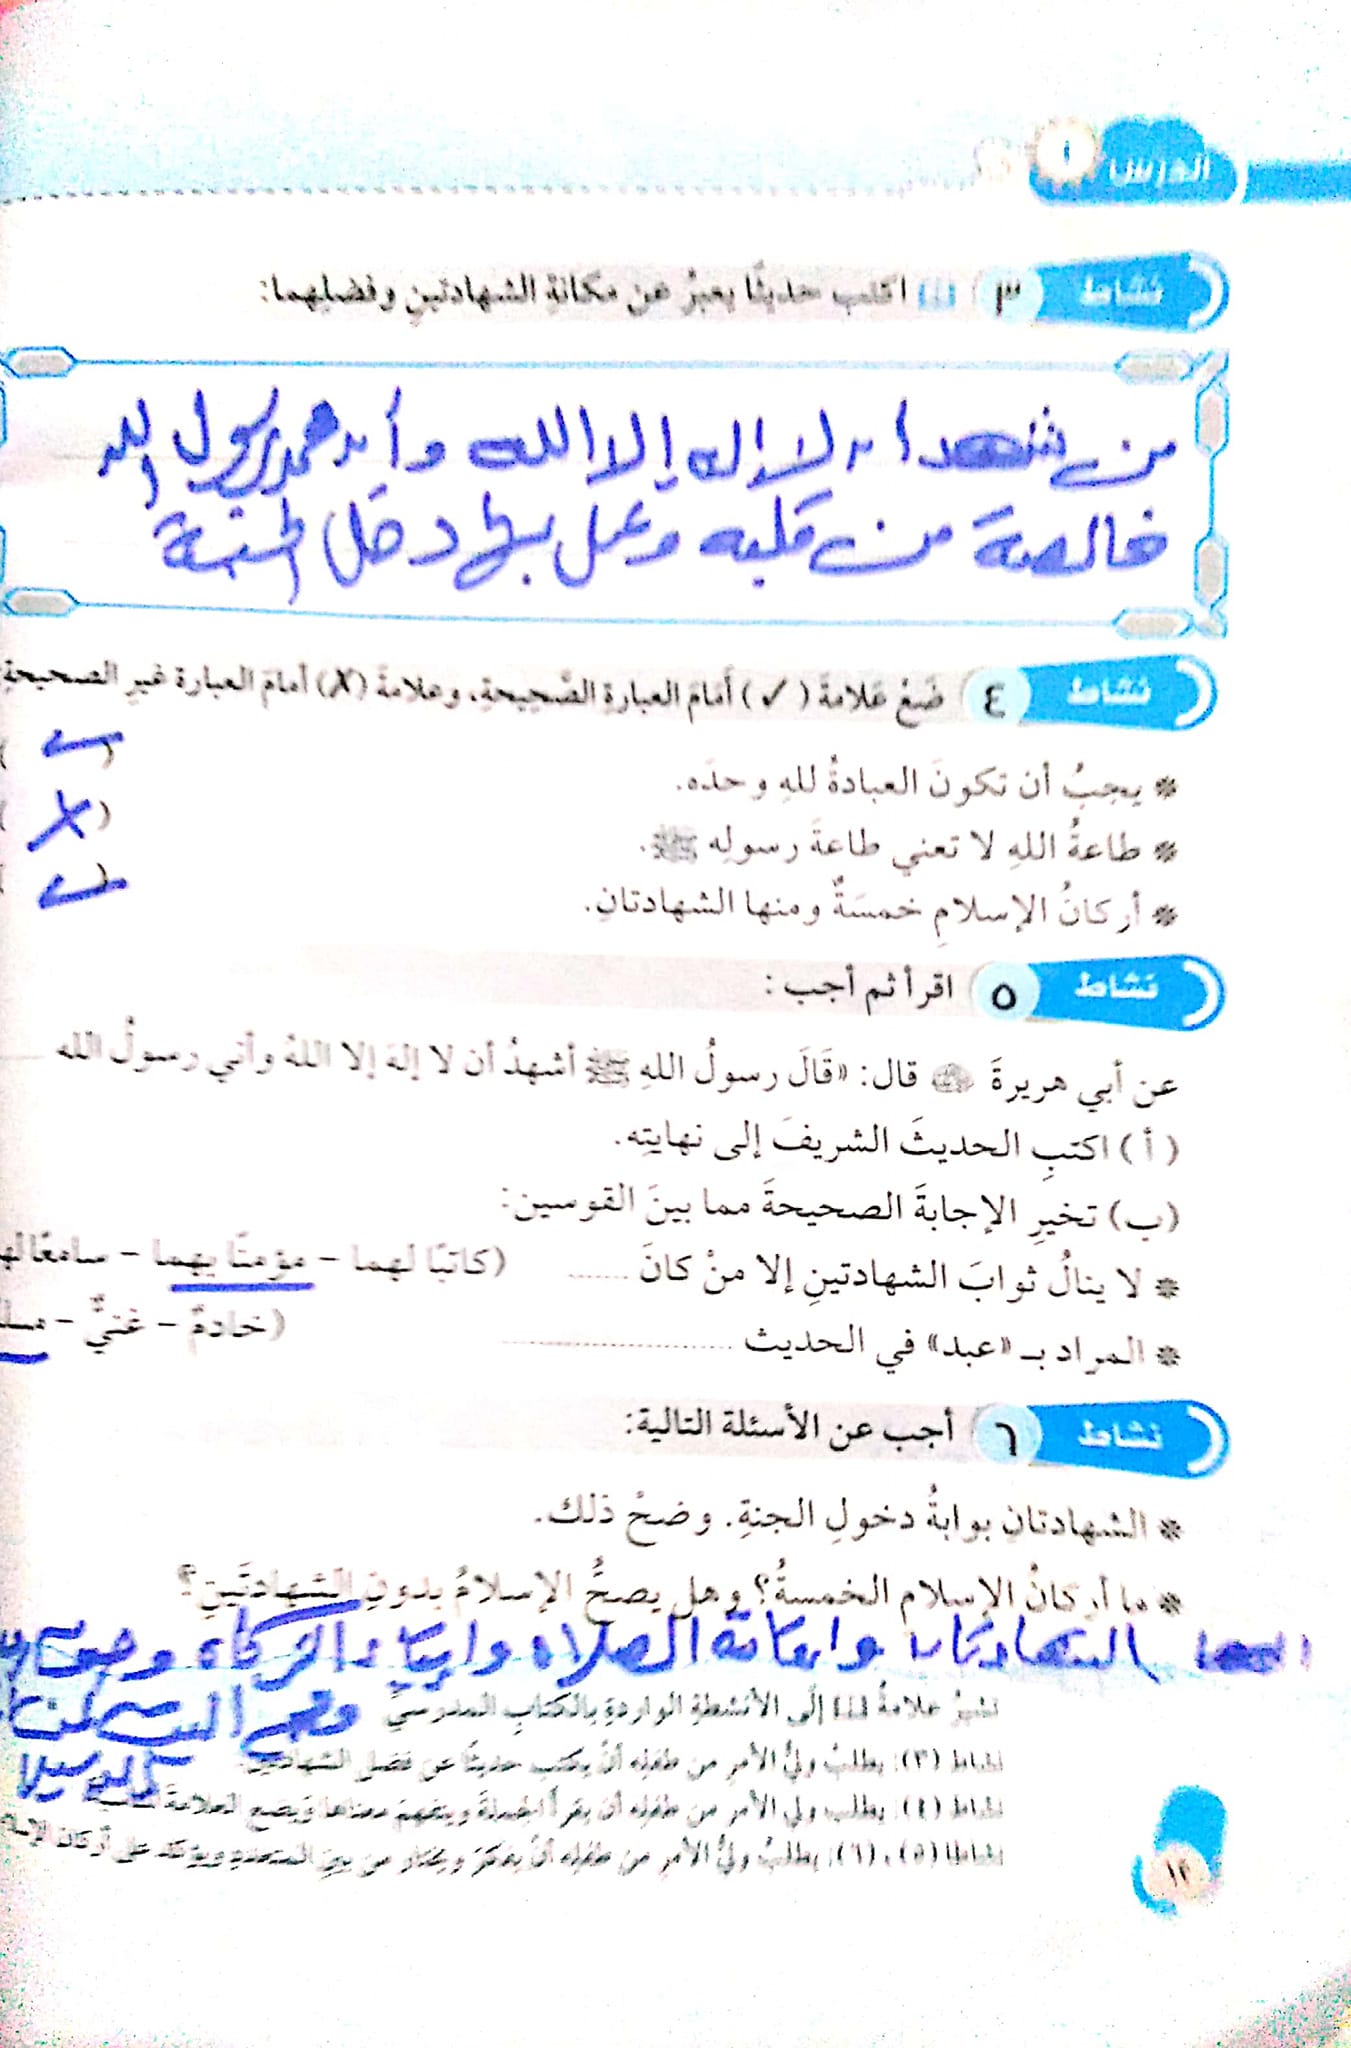 الدرس ١
نشاط ٣ اكتب حديثًا يعبرُ عن مكانةِ الشهادتينِ وفضلِهما:
من شهد أن لا إله إلا الله وأن محمد رسول الله
خالصة من قلبه وعمل بها دخل الجنة
نشاط ٤ ضَعْ عَلامةَ (✓) أمامَ العبارةِ الصَّحِيحةِ، وعلامةَ (X) أمامَ العبارة غيرِ الصحيحةِ
* يجبُ أن تكونَ العبادةُ للهِ وحدَه. ( ✓ )
* طاعةُ اللهِ لا تعني طاعةَ رسولِه ﷺ. ( X )
* أركانُ الإسلامِ خمسَةٌ ومنها الشهادتانِ. ( ✓ )
نشاط ٥ اقرأ ثم أجب:
عن أبي هريرةَ قال: «قَالَ رسولُ اللهِ ﷺ أشهدُ أن لا إلهَ إلا اللهُ وأني رسولُ الله
(أ) اكتبِ الحديثَ الشريفَ إلى نهايتِه.
(ب) تخيرِ الإجابةَ الصحيحةَ مما بينَ القوسين:
* لا ينالُ ثوابَ الشهادتينِ إلا منْ كانَ ...... (كاتبًا لهما – مؤمنًا بهما – سامعًا
* المراد بـ «عبد» في الحديث ...................... (خادمٌ – غنيٌّ –
نشاط ٦ أجب عن الأسئلة التالية:
* الشهادتانِ بوابةُ دخولِ الجنةِ. وضحْ ذلك.
* ما أركانُ الإسلامِ الخمسةُ؟ وهل يصحُّ الإسلامُ بدونِ الشهادتَينِ؟
الشهادتان واقامة الصلاة وايتاء الزكاة وصوم
وحج البيت لمن
تشيرُ علامةُ إلى الأنشطةِ الواردةِ بالكتابِ المدرسيِّ
نشاط (٣): يطلبُ وليُّ الأمرِ من طفلِه أنْ يكتب حديثًا عن فضل الشهادتين.
إليه سبيلا
نشاط (٤): يطلب ولي الأمر من طفلِه أن يقرأ الجملةَ ويتفهمَ معناها ويضع العلامةَ المناسبة
نشاطا (٥)، (٦): يطلبُ وليُّ الأمرِ من طفلِه أنْ يفكرَ ويختار من بين المتعددِ ويؤكد على أركان
١٢